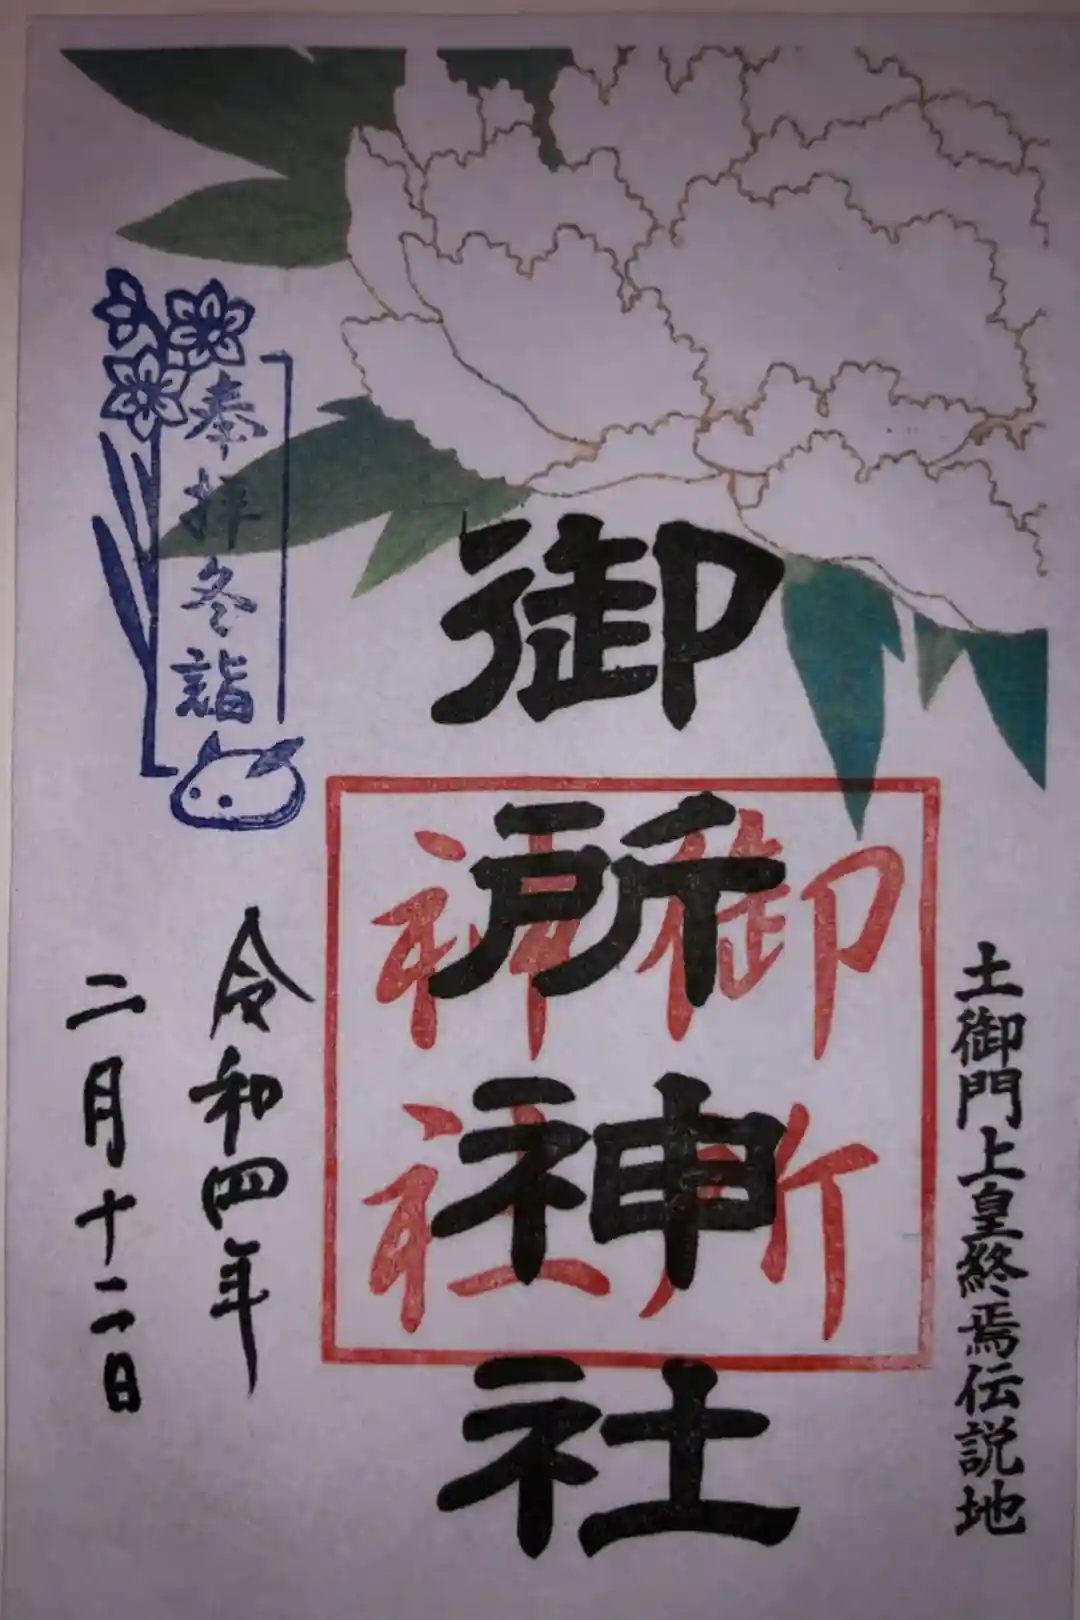 土御門上皇終焉伝説地
御所神社
御所
神社
奉拝冬詣
令和四年
二月十二日